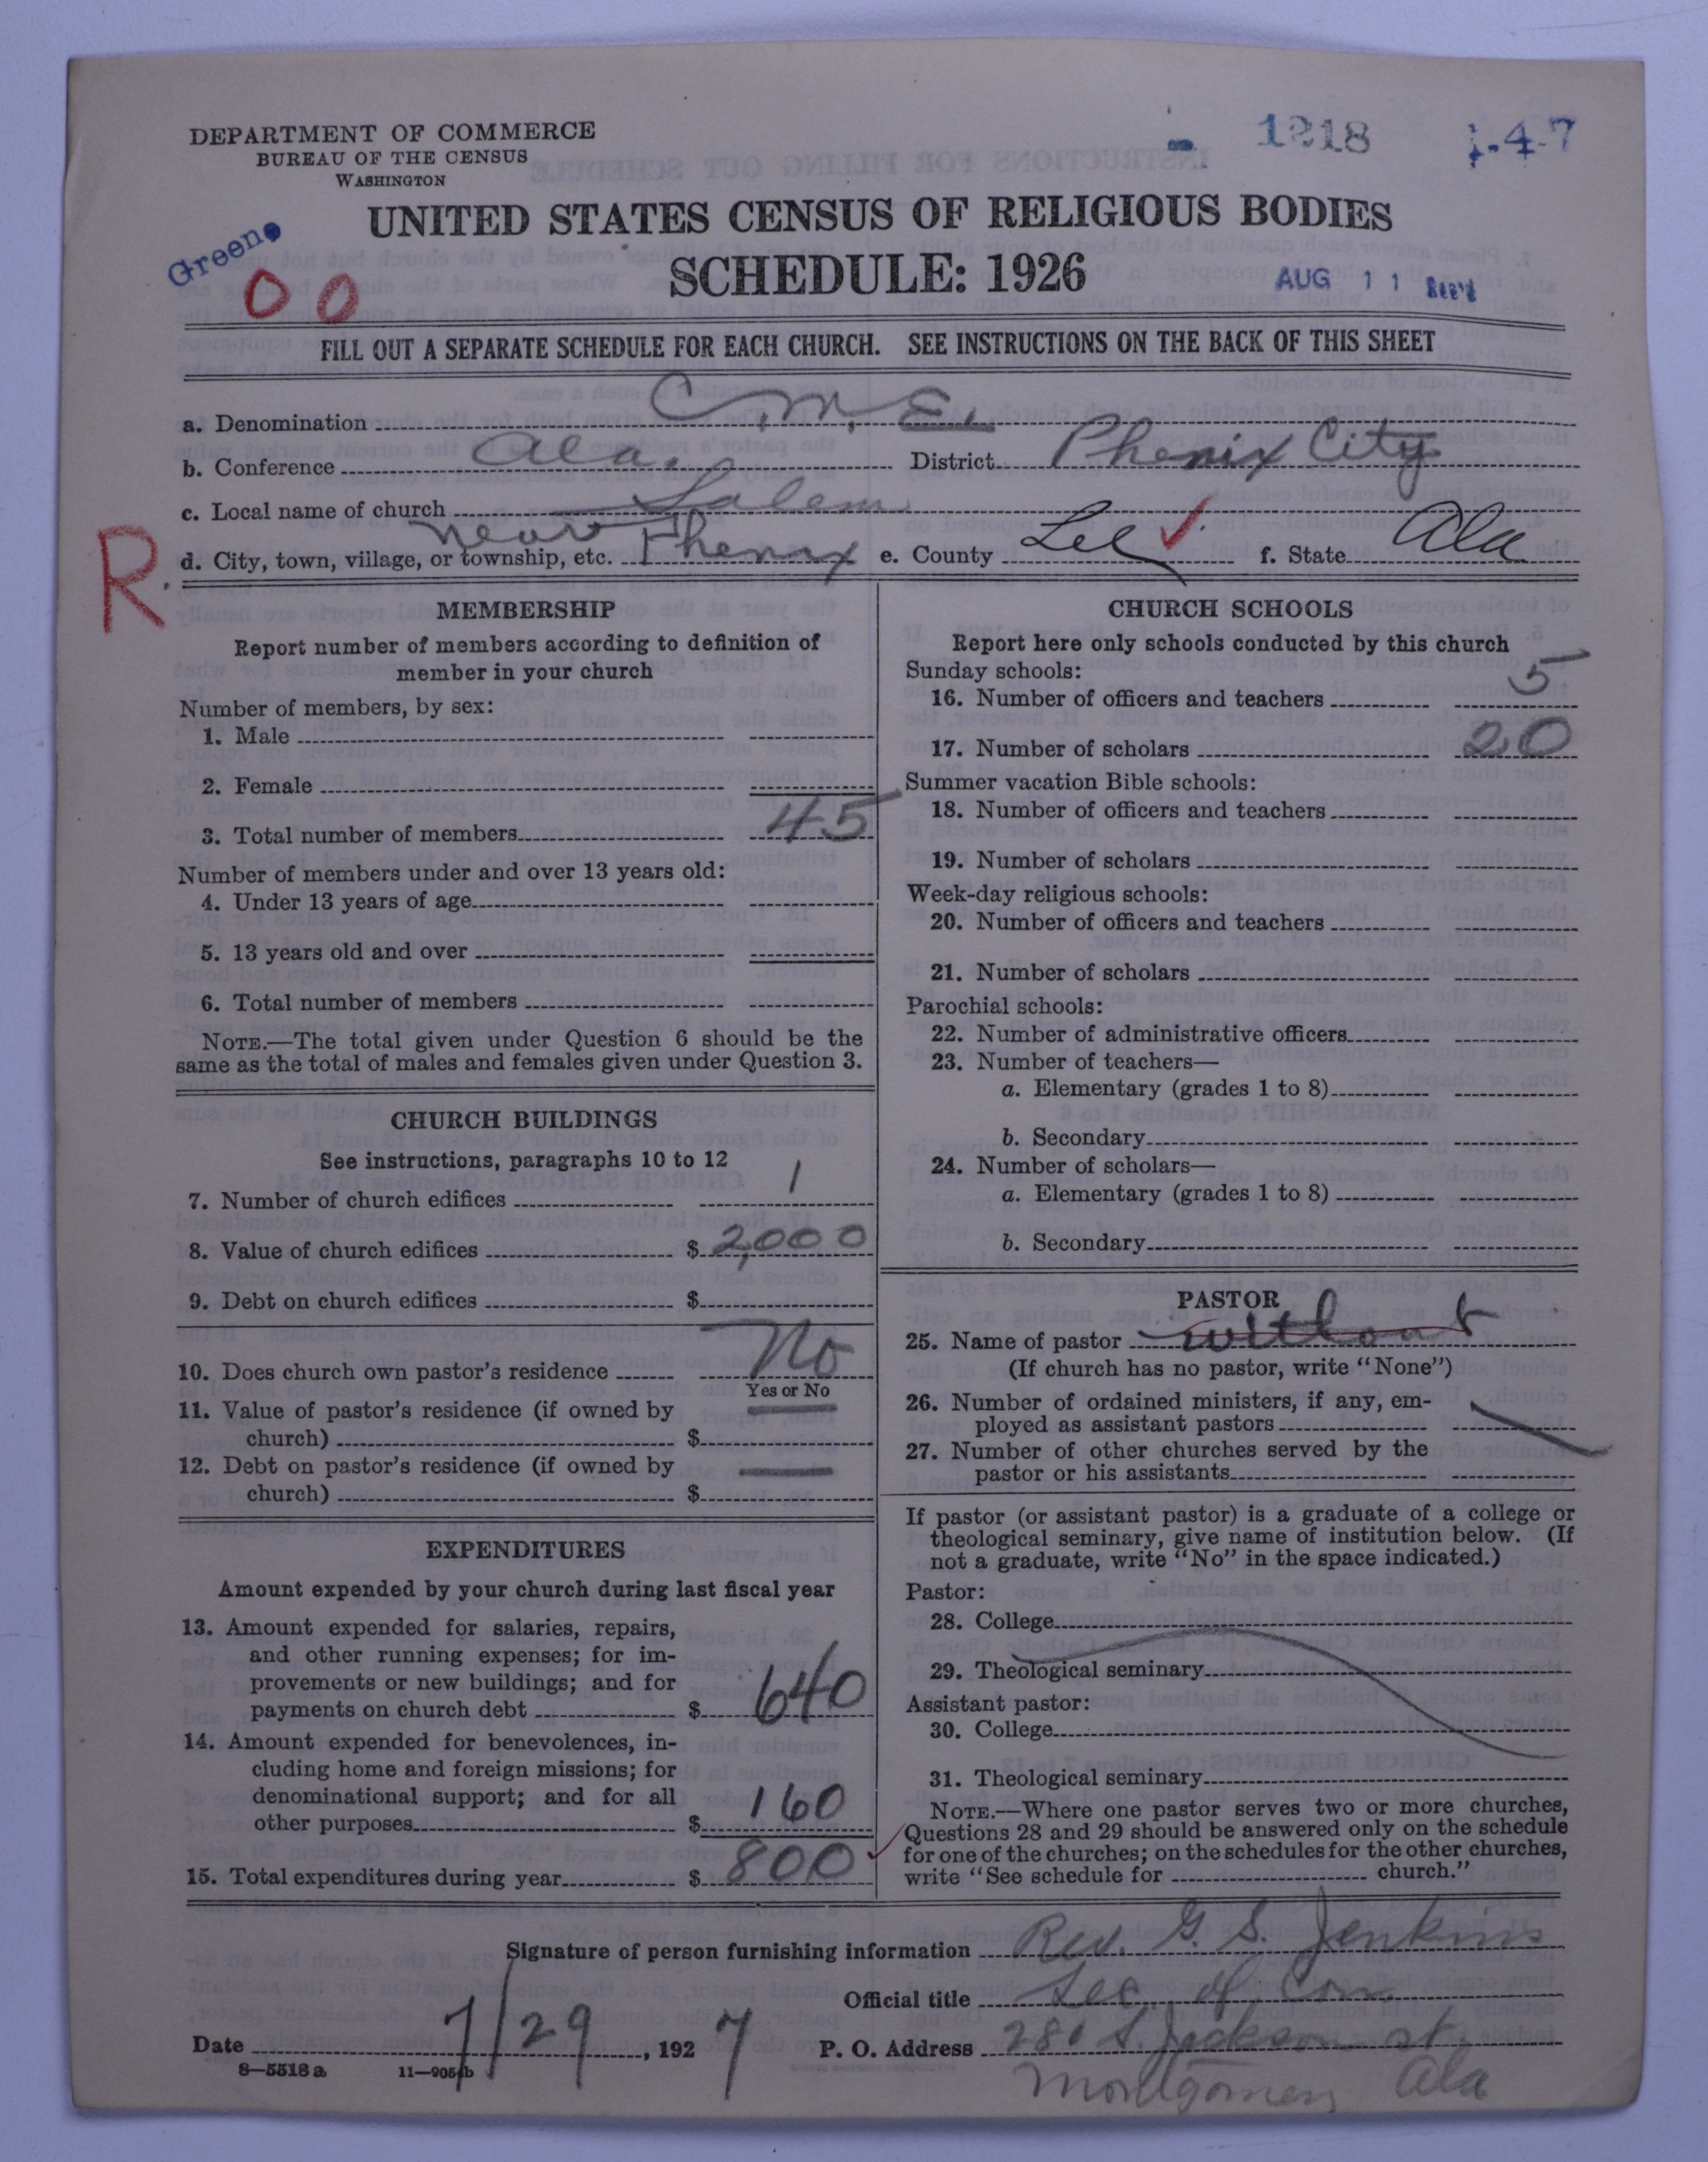 DEPARTMENT OF COMMERCE
BUREAU OF THE CENSUS
WASHINGTON
1218 1-4-7
UNITED STATES CENSUS OF RELIGIOUS BODIES
Greene
SCHEDULE: 1926
AUG 11 Rec'd
0 0
FILL OUT A SEPARATE SCHEDULE FOR EACH CHURCH. SEE INSTRUCTIONS ON THE BACK OF THIS SHEET
a. Denomination C. M. E.
b. Conference Ala. District Phenix City
c. Local name of church Salem
R d. City, town, village, or township, etc. near Phenix e. County Lee ✓ f. State Ala
MEMBERSHIP
Report number of members according to definition of
member in your church
Number of members, by sex:
1. Male
2. Female
3. Total number of members 45
Number of members under and over 13 years old:
4. Under 13 years of age
5. 13 years old and over
6. Total number of members
NOTE.—The total given under Question 6 should be the
same as the total of males and females given under Question 3.
CHURCH BUILDINGS
See instructions, paragraphs 10 to 12
7. Number of church edifices 1
8. Value of church edifices $ 2,000
9. Debt on church edifices $
10. Does church own pastor's residence No
Yes or No
11. Value of pastor's residence (if owned by
church) $
12. Debt on pastor's residence (if owned by
church) $
EXPENDITURES
Amount expended by your church during last fiscal year
13. Amount expended for salaries, repairs,
and other running expenses; for im-
provements or new buildings; and for
payments on church debt $ 640
14. Amount expended for benevolences, in-
cluding home and foreign missions; for
denominational support; and for all
other purposes $ 160
15. Total expenditures during year $ 800
CHURCH SCHOOLS
Report here only schools conducted by this church
Sunday schools:
16. Number of officers and teachers 5
17. Number of scholars 20
Summer vacation Bible schools:
18. Number of officers and teachers
19. Number of scholars
Week-day religious schools:
20. Number of officers and teachers
21. Number of scholars
Parochial schools:
22. Number of administrative officers
23. Number of teachers—
a. Elementary (grades 1 to 8)
b. Secondary
24. Number of scholars—
a. Elementary (grades 1 to 8)
b. Secondary
PASTOR
25. Name of pastor without
(If church has no pastor, write "None")
26. Number of ordained ministers, if any, em-
ployed as assistant pastors
27. Number of other churches served by the
pastor or his assistants
If pastor (or assistant pastor) is a graduate of a college or
theological seminary, give name of institution below. (If
not a graduate, write "No" in the space indicated.)
Pastor:
28. College
29. Theological seminary
Assistant pastor:
30. College
31. Theological seminary
NOTE.—Where one pastor serves two or more churches,
Questions 28 and 29 should be answered only on the schedule
for one of the churches; on the schedules for the other churches,
write "See schedule for church."
Signature of person furnishing information Rev. G. S. Jenkins
Official title Sec. of Con.
Date 7/29, 1927 P. O. Address 280 S. Jackson st.
8—5518a 11—9054b
Montgomery Ala